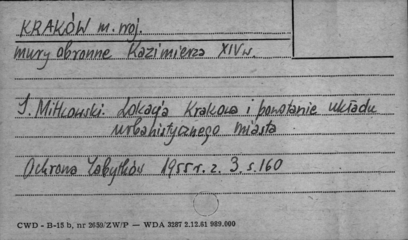 KRAKÓW m. woj.
mury obronne Kazimierza XIV w.
J. Mitkowski. Lokacja Krakowa i powstanie układu
urbanistycznego miasta
Ochrona Zabytków 1955 r. z. 3. s. 160
CWD - B-15 b, nr 2639/ZW/P — WDA 3287 2.12.61 989.000